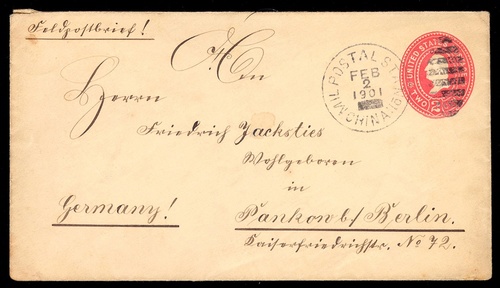 Feldpostbrief!
An
Herrn
Friedrich Jacksties
Wohlgeboren
in
Germany!
Pankow b/ Berlin.
Kaiserfriedrichstr. No 72.
MIL. POSTAL STA.
CHINA
FEB
2
1901
UNITED STATES
TWO